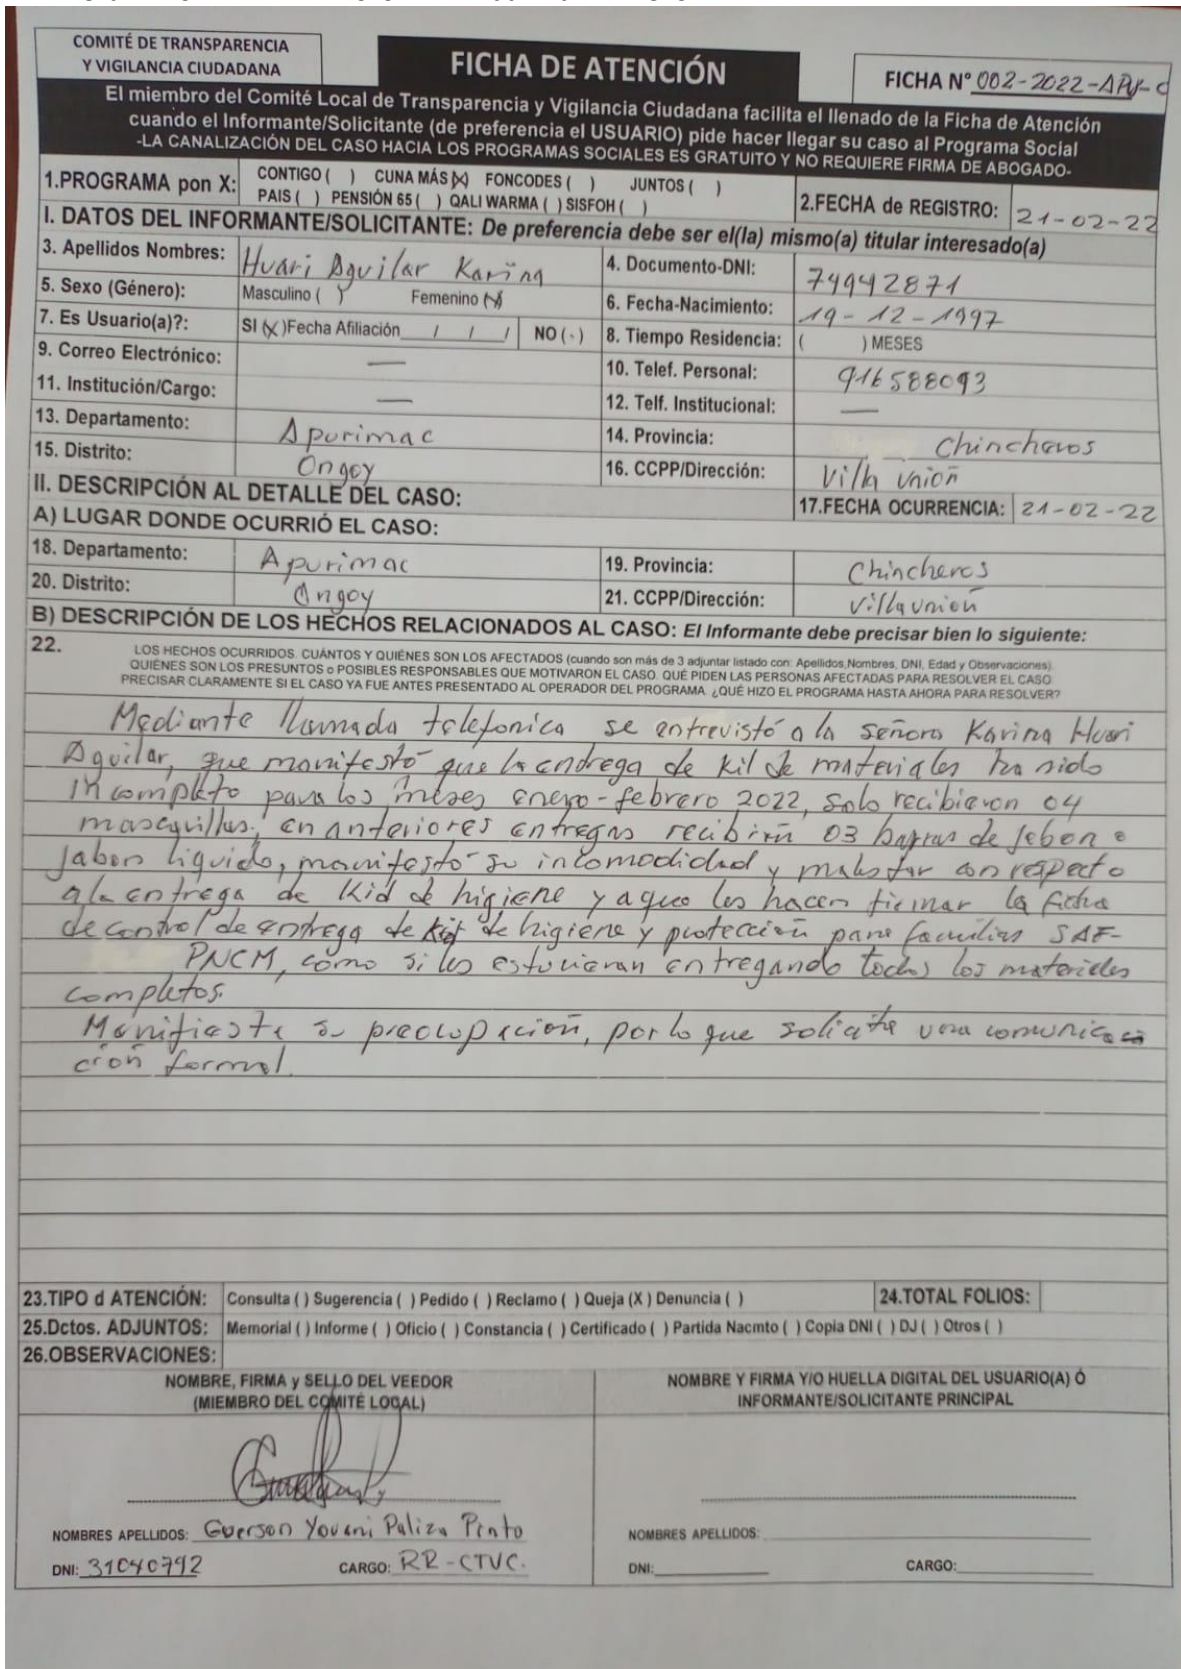 COMITÉ DE TRANSPARENCIA
Y VIGILANCIA CIUDADANA
FICHA DE ATENCIÓN
FICHA N° 002-2022-APU-C
El miembro del Comité Local de Transparencia y Vigilancia Ciudadana facilita el llenado de la Ficha de Atención
cuando el Informante/Solicitante (de preferencia el USUARIO) pide hacer llegar su caso al Programa Social
-LA CANALIZACIÓN DEL CASO HACIA LOS PROGRAMAS SOCIALES ES GRATUITO Y NO REQUIERE FIRMA DE ABOGADO-
1.PROGRAMA pon X: CONTIGO ( ) CUNA MÁS (X) FONCODES ( ) JUNTOS ( )
PAIS ( ) PENSIÓN 65 ( ) QALI WARMA ( ) SISFOH ( )
2.FECHA de REGISTRO: 21-02-22
I. DATOS DEL INFORMANTE/SOLICITANTE: De preferencia debe ser el(la) mismo(a) titular interesado(a)
3. Apellidos Nombres: Huari Aguilar Karina
4. Documento-DNI: 74942871
5. Sexo (Género): Masculino ( ) Femenino (X)
6. Fecha-Nacimiento: 19-12-1997
7. Es Usuario(a)?: SI (X) Fecha Afiliación / / / NO (-)
8. Tiempo Residencia: ( ) MESES
9. Correo Electrónico: —
10. Telef. Personal: 916588093
11. Institución/Cargo: —
12. Telf. Institucional: —
13. Departamento: Apurimac
14. Provincia: Chincheros
15. Distrito: Ongoy
16. CCPP/Dirección: Villa unión
II. DESCRIPCIÓN AL DETALLE DEL CASO:
17.FECHA OCURRENCIA: 21-02-22
A) LUGAR DONDE OCURRIÓ EL CASO:
18. Departamento: Apurimac
19. Provincia: Chincheros
20. Distrito: Ongoy
21. CCPP/Dirección: Villa unión
B) DESCRIPCIÓN DE LOS HECHOS RELACIONADOS AL CASO: El Informante debe precisar bien lo siguiente:
22. LOS HECHOS OCURRIDOS. CUÁNTOS Y QUIÉNES SON LOS AFECTADOS (cuando son más de 3 adjuntar listado con: Apellidos,Nombres, DNI, Edad y Observaciones).
QUIÉNES SON LOS PRESUNTOS o POSIBLES RESPONSABLES QUE MOTIVARON EL CASO. QUÉ PIDEN LAS PERSONAS AFECTADAS PARA RESOLVER EL CASO.
PRECISAR CLARAMENTE SI EL CASO YA FUE ANTES PRESENTADO AL OPERADOR DEL PROGRAMA. ¿QUÉ HIZO EL PROGRAMA HASTA AHORA PARA RESOLVER?
Mediante llamada telefonica se entrevistó a la señora Karina Huari
Aguilar, que manifestó que la endrega de kil de materiales ha sido
incompleto para los meses enero-febrero 2022, solo recibieron 04
mascarillas, en anteriores entregas recibirn 03 barras de jebon o
jabon liquido, manifesto su incomodidad y malestar con respecto
a la entrega de Kid de higiene y aque les hacen firmar la ficha
de control de entrega de kit de higiene y protección para familias SAF-
PNCM, cómo si les estuvieran entregando todos los materiales
completos.
Manifiesta su preocupación, por lo que solicita una comunica
ción formal.
23.TIPO d ATENCIÓN: Consulta ( ) Sugerencia ( ) Pedido ( ) Reclamo ( ) Queja (X ) Denuncia ( )
24.TOTAL FOLIOS:
25.Dctos. ADJUNTOS: Memorial ( ) Informe ( ) Oficio ( ) Constancia ( ) Certificado ( ) Partida Nacmto ( ) Copia DNI ( ) DJ ( ) Otros ( )
26.OBSERVACIONES:
NOMBRE, FIRMA y SELLO DEL VEEDOR
(MIEMBRO DEL COMITÉ LOCAL)
NOMBRE Y FIRMA Y/O HUELLA DIGITAL DEL USUARIO(A) Ó
INFORMANTE/SOLICITANTE PRINCIPAL
NOMBRES APELLIDOS: Guerson Yovani Paliza Pinto
NOMBRES APELLIDOS:
DNI: 31040792 CARGO: RR-CTVC.
DNI: CARGO: